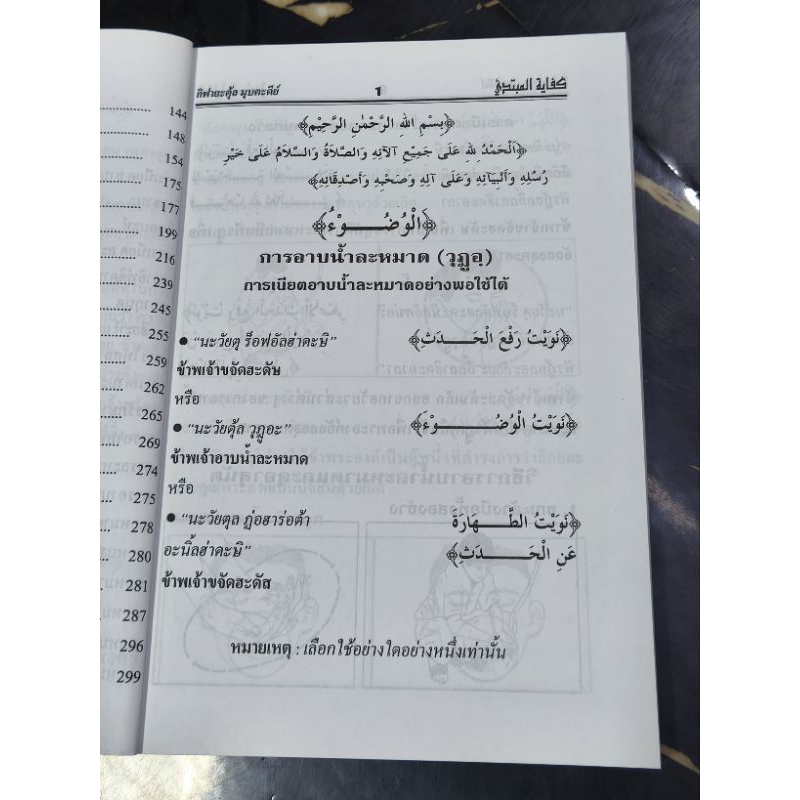 144
148
154
175
177
199
216
239
245
255
259
262
265
269
274
275
278
280
281
287
296
299
กิฟายะตุ้ล มุบตะดีย์ 1 كفاية المبتدي
﴿بِسْمِ اللهِ الرَّحْمٰنِ الرَّحِيْمِ﴾
﴿اَلْحَمْدُ لِلّٰهِ عَلَى جَمِيْعِ آلَائِهِ وَالصَّلَاةُ وَالسَّلَامُ عَلَى خَيْرِ
رُسُلِهِ وَأَنْبِيَائِهِ وَعَلَى آلِهِ وَصَحْبِهِ وَأَصْدِقَائِهِ﴾
﴿اَلْوُضُــــوْءُ﴾
การอาบน้ำละหมาด (วุฏูอฺ)
การเนียตอาบน้ำละหมาดอย่างพอใช้ได้
● “นะวัยตุ ร็อฟอัลฮ่าดะษิ” ﴿نَوَيْتُ رَفْعَ الْحَـــدَثِ﴾
ข้าพเจ้าขจัดฮะดัษ
หรือ
● “นะวัยตุ้ล วุฎูอะ” ﴿نَوَيْتُ الْوُضُــــوْءَ﴾
ข้าพเจ้าอาบน้ำละหมาด
หรือ
● “นะวัยตุล ฏ่อฮาร่อต้า ﴿نَوَيْتُ الطَّـــهَارَةَ
อะนิ้ลฮ่าดะษิ” عَنِ الْحَـــدَثِ﴾
ข้าพเจ้าขจัดฮะดัส
หมายเหตุ : เลือกใช้อย่างใดอย่างหนึ่งเท่านั้น